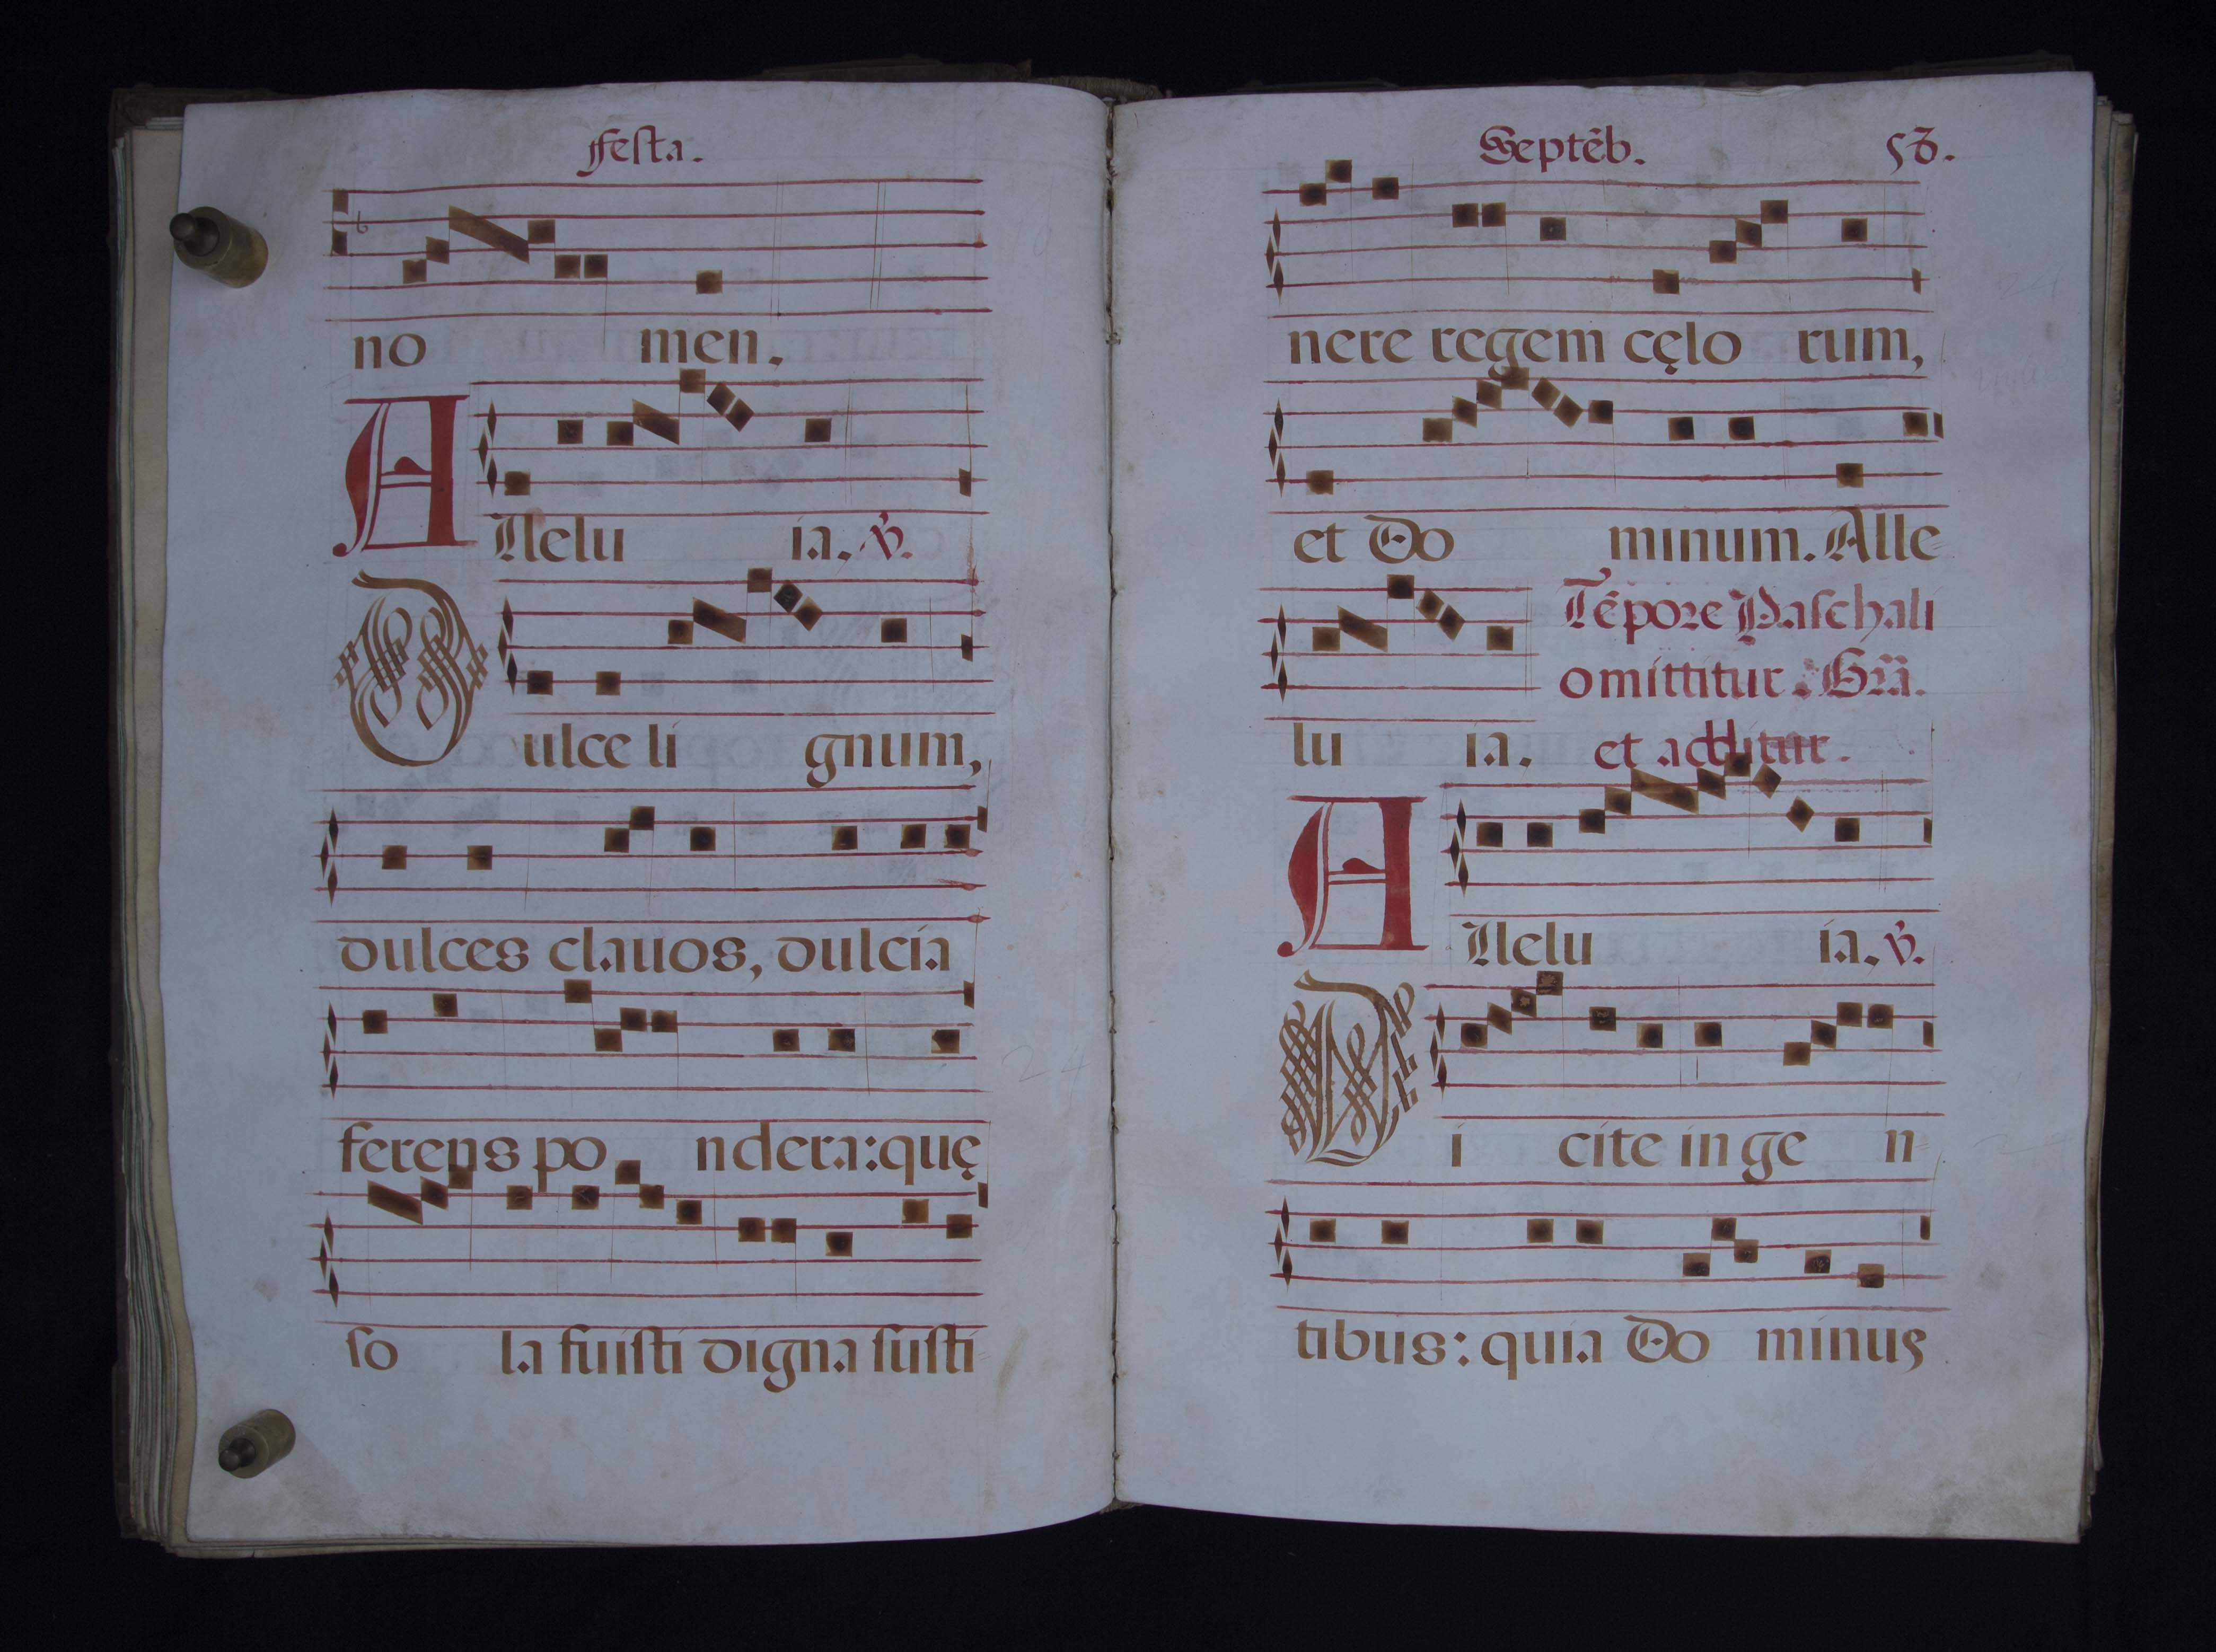 ffesta.
no men.
Allelu ia. ℣.
Dulce li gnum,
dulces clauos, dulcia
ferens po ndera: quę
so la fuisti digna susti
Septẽb. 58.
nere regem cęlo rum,
et Do minum. Alle
lu ia. Tẽpore Paschali
omittitur Grã.
et additur.
Allelu ia. ℣.
Di cite in ge n
tibus: quia Do minus